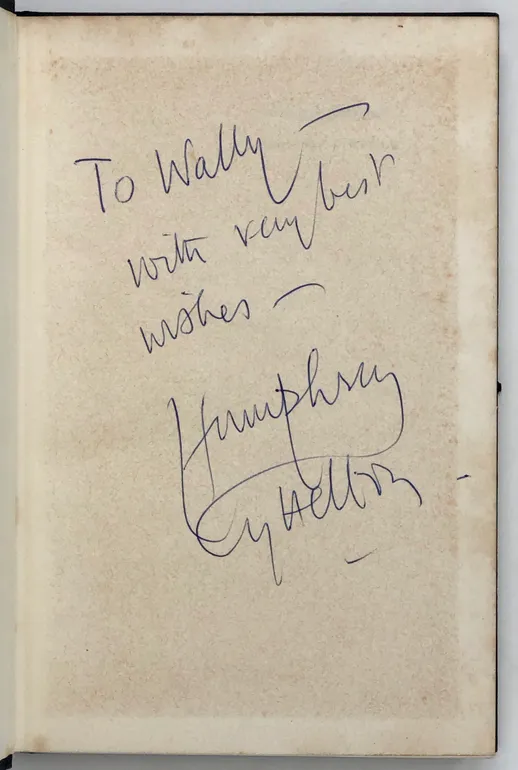 To Wally —
with very best
wishes —
Humphrey
Lyttelton